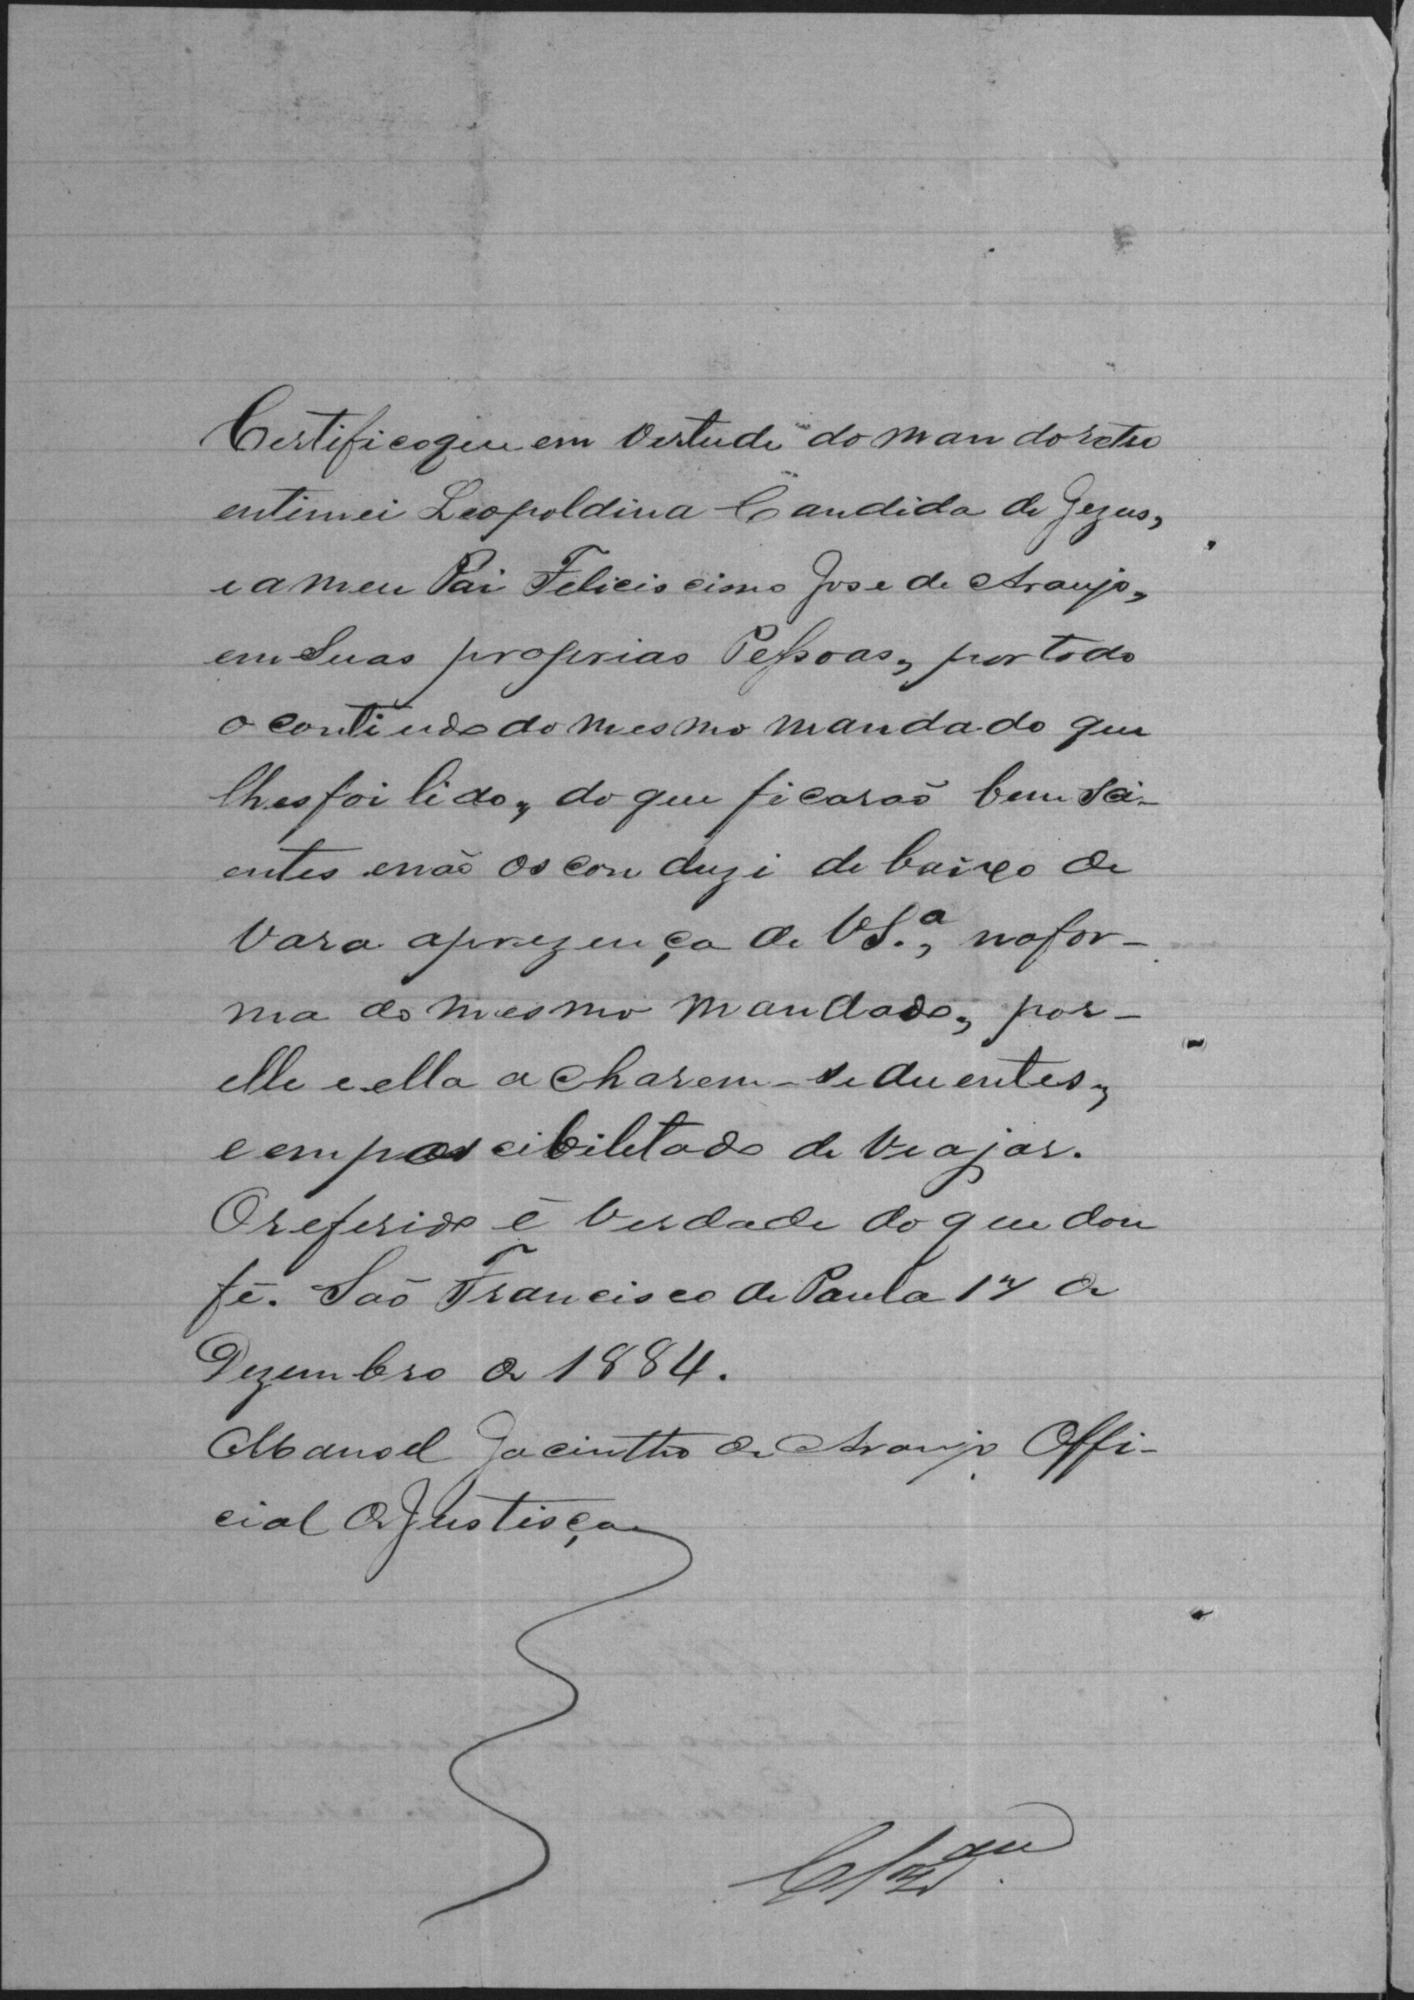 Certifico que em vertude do man do retro
entimei Leopoldina Candida de Jezus,
e a meu Pai Feliciscimo Jose de Araujo,
em Suas proprias Pessoas, por todo
o contiudo do mesmo mandado que
lhes foi lido, do que ficaraõ bem sci-
entes e não os con duzi de baixo de
vara aprezença de VS.ª, na for-
ma do mesmo mandado, por-
elle e ella a charem-se duentes,
e empos cibiletado de veajar.
O referido é verdade do que dou
fé. Saõ Francisco de Paula 17 de
Dezembro de 1884.
Manoel Jacintho de Araujo Offi-
cial de Justisça